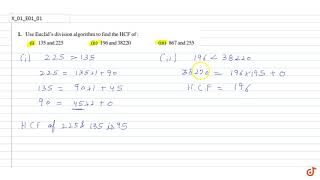 X_01_E01_01
1. Use Euclid's division algorithm to find the HCF of :
(i) 135 and 225 (ii) 196 and 38220 (iii) 867 and 255
(i) 225 > 135 (ii) 196 < 38220
225 = 135×1 + 90 38220 = 196×195 + 0
135 = 90×1 + 45 H.C.F = 196
90 = 45×2 + 0
H.C.F of 225 & 135 is 45